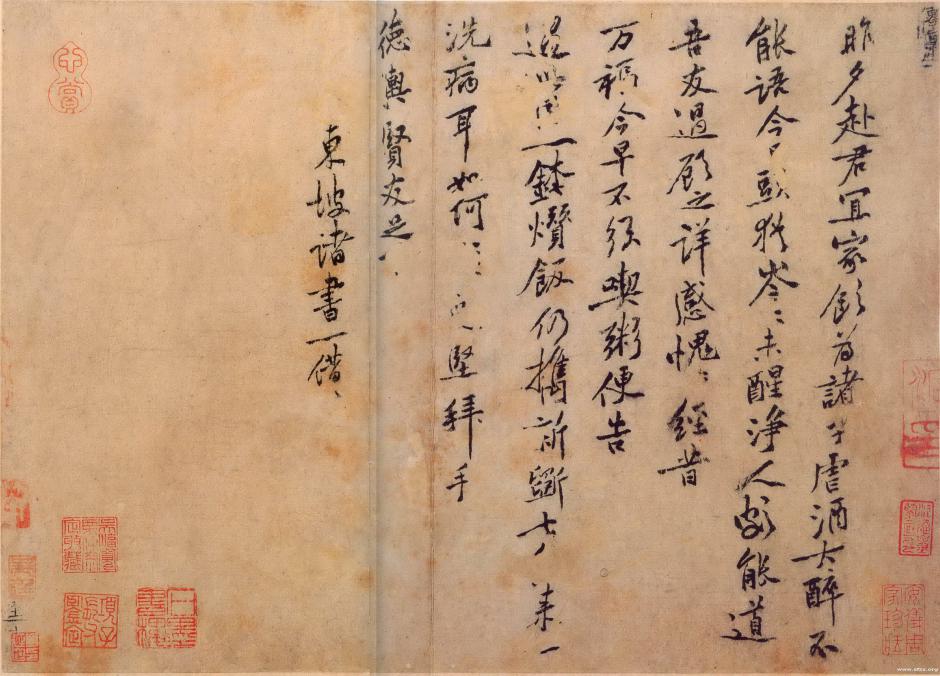 昨夕赴君宜家飲為諸子虐酒大醉不
能語今日頭猶岑岑未醒淨人密能道
吾友過顧之詳感愧感愧經昔
万福今早不須喫粥便告
過此同一鉢饡飯仍攜所斲七來一
洗病耳如何如何 庭堅拜手
德輿賢友足下
東坡諸書一借
www.ltfc.org